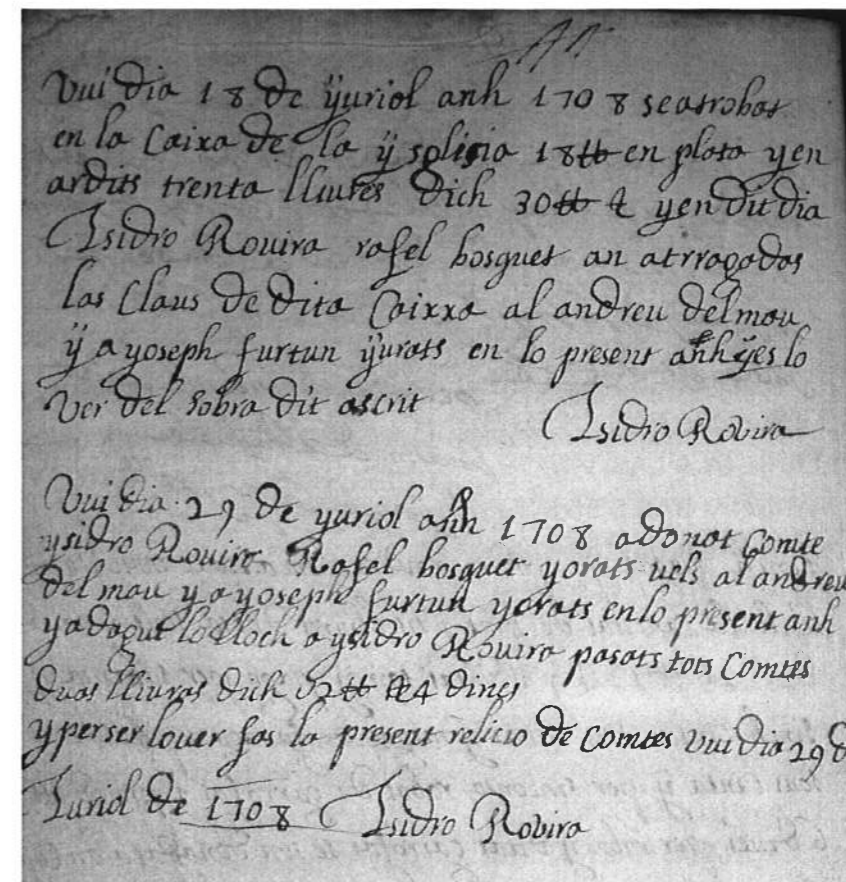 Vui dia 18 de ÿuriol anh 1708 seatrobat
en la Caixa de la ÿ solisia 18tt en plata y en
ardits trenta lliures dich 30tt y en dit dia
Isidro Rouira rafel bosquet an atrragadas
las Claus de dita Caixxa al andreu delmau
ÿ a yoseph furtun ÿurats en lo present anh ÿes lo
Ver del sobra dit ascrit
Isidro Rovira
Vui dia 29 de yuriol anh 1708 a donat Comte
ysidro Rouira Rafel bosquet yorats uels al andreu
delmau y a yoseph furtun yorats enlo present anh
y a dagut lo lloch a ysidro Rouira pasats tots Comtes
duas lliuras dich 02tt 4 dines
y perser louer fas la present relicio de Comtes vui dia 29 d
Iuriol de 1708 Isidro Rovira